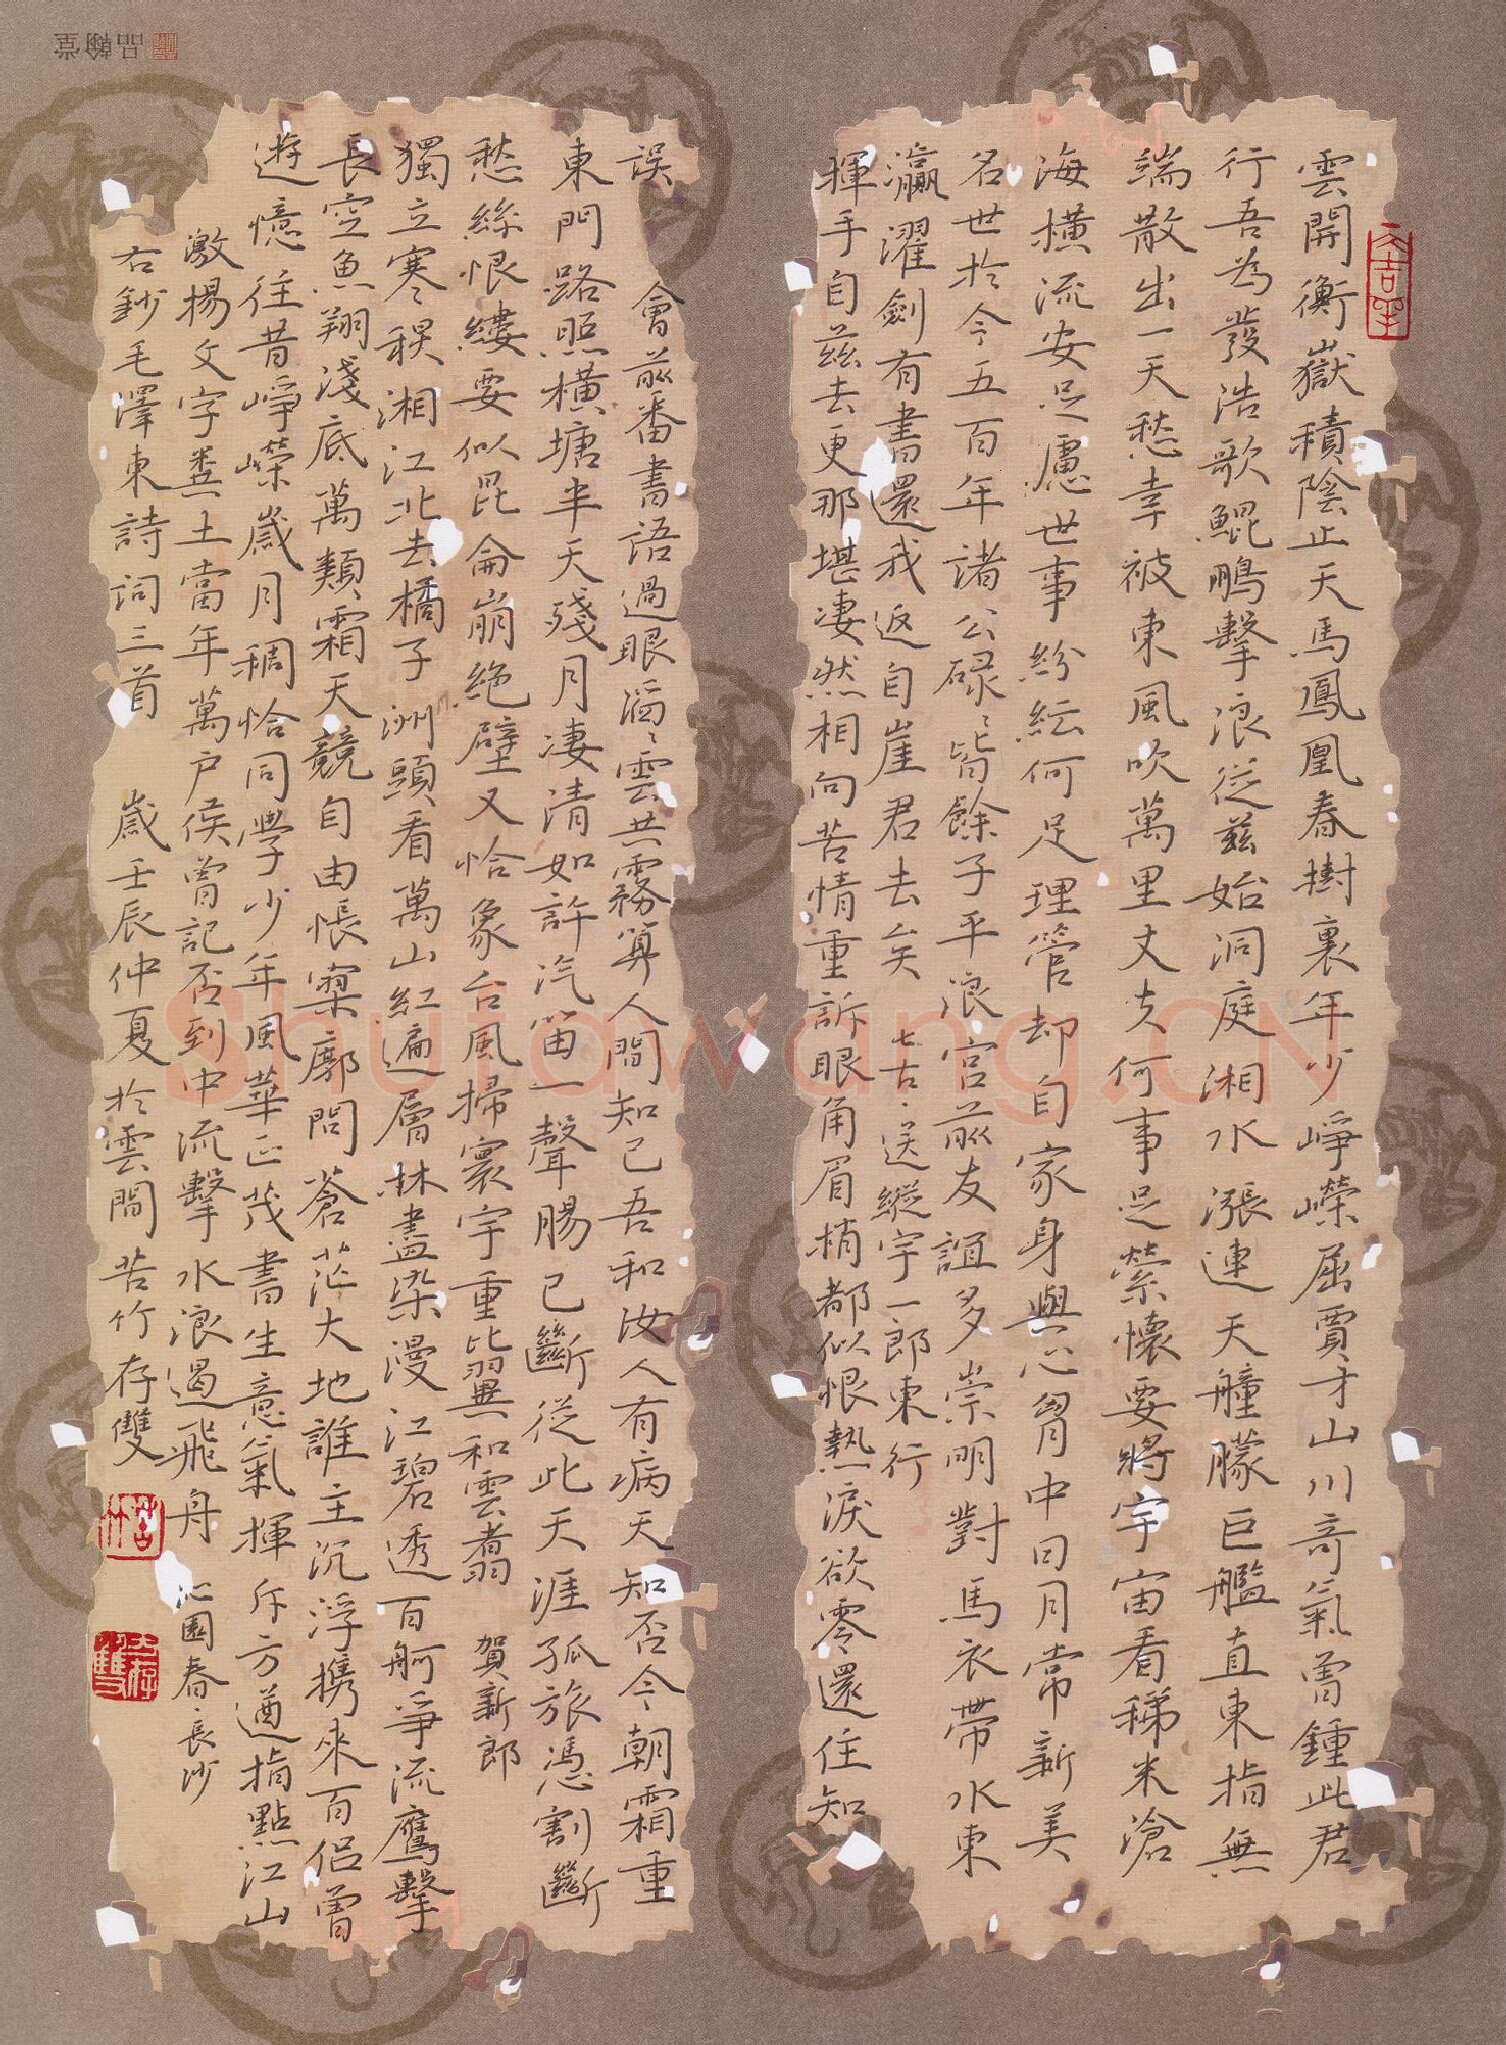 雲開衡嶽積陰止天馬鳳凰春樹裏年少崢嶸屈賈才山川奇氣曾鍾此君
行吾為發浩歌鯤鵬擊浪從茲始洞庭湘水漲連天艟艨巨艦直東指無
端散出一天愁幸被東風吹萬里丈夫何事足縈懷要將宇宙看稊米滄
海橫流安足慮世事紛紜何足理管却自家身與心胷中日月常新美
名世於今五百年諸公碌々皆餘子平浪宮前友誼多崇明對馬衣帶水東
瀛濯劍有書還我返自崖君去矣 七古·送縱宇一郎東行
揮手自茲去更那堪凄然相向苦情重訴眼角眉梢都似恨熱淚欲零還住知
誤會前番書語過眼滔々雲共霧算人間知己吾和汝人有病天知否今朝霜重
東門路照橫塘半天殘月凄清如許汽笛一聲腸已斷從此天涯孤旅憑割斷
愁絲恨縷要似昆侖崩絕壁又恰象台風掃寰宇重比翼和雲翥 賀新郎
獨立寒秋湘江北去橘子洲頭看萬山紅遍層林盡染漫江碧透百舸爭流鷹擊
長空魚翔淺底萬類霜天競自由悵寥廓問蒼茫大地誰主沉浮攜來百侶曾
遊憶往昔崢嶸歲月稠恰同學少年風華正茂書生意氣揮斥方遒指點江山
激揚文字糞土當年萬戶侯曾記否到中流擊水浪遏飛舟 沁園春·長沙
右鈔毛澤東詩詞三首 歲壬辰仲夏於雲間苦竹存雙
苦竹
存雙
品翰堂
Shufawang.CN